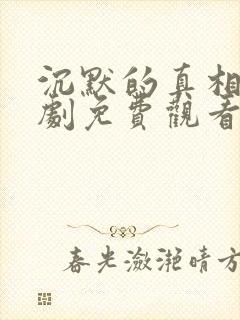 沉默的真相
劇免費觀看
春光瀲灩晴方